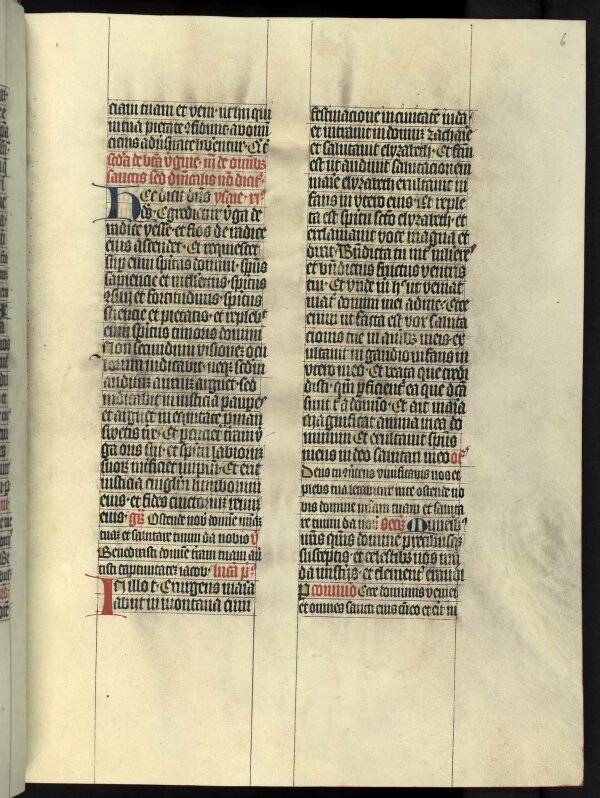 ciam tuam et veni· ut hii qui
in tua pietate cōfidūt· ab omni
citius aduſitate liberentur· Et
scda de bta vgine· iij de omibus
sanctis sed dnicalis nō dicit
Hec dicit dns ysaie xi
ds· Egredietur virga de
radice yesse· et flos de radice
eius ascendet· Et requiescet
sup eum spiritus domini· spūs
sapiencie et intellectus· spiritus
cōsilij et fortitudinis· spiritus
sciencie et pietatis· et replebit
eum spiritus timoris domini
Non secundum visionem ocu
lorum iudicabit· neq; scdm
auditum aurium arguet· sed
iudicabit in iusticia paupes
et arguet in equitate p man
suetis tre· Et percuciet tram v
ga oris sui· et spiritu labiorum
suorum inficiet impiū· Et erit
iusticia cingulum lumborum
eius· et fides cinctorium renum
eius· gr Ostende nobis domine miam
tuam et salutare tuum da nobis v
Benedixisti domine tram tuam au
tisti captiuitatem iacob· lucā p
In illo t· Exurgens maria
abiit in montana cum
festinacione in ciuitatē iuda·
et intrauit in domum zacharie
et salutauit elyzabeth· Et factū
est ut audiuit salutacionem
marie elyzabeth exultauit in
fans in utero eius· Et reple
ta est spiritu scto elyzabeth· et
exclamauit voce magna et
dixit· Bndicta tu int mulieres
et bndictus fructus ventris
tui· Et unde in hoc ut veniat
mater domini mei ad me· Ecce
enim ut facta est vox saluta
cionis tue in aurib; meis ex
ultauit in gaudio infans in
utero meo· Et beata que credi
disti· qm pficient ea que dcā
sunt t a domīo· Et ait maria
Magnificat anima mea do
minum Et exultauit spūs
meus in deo salutari meo of
Deus tu quens viuificabis nos et
plebs tua letabitur in te ostende no
bis domine miam tuam et saluta
re tuum da nobis secr Munerib;
nris qus domine precibusq;
susceptis· et celestib; nos mū
da mistijs· et clementer exaudi
P comūio Ecce dominus veniet
et omnes sancti eius cū eo et erit in
6